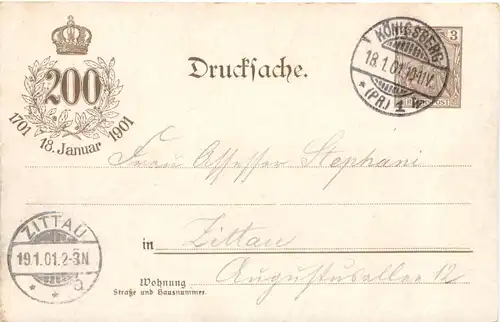 200
1701 18. Januar 1901
Drucksache.
3
KÖNIGSBERG
18.1.01.10-11V.
* (PR.) 1
Frau Assessor Stephani
in Zittau
Augustusallee 12
Wohnung
Straße und Hausnummer.
ZITTAU
19.1.01.2-3N
* * a